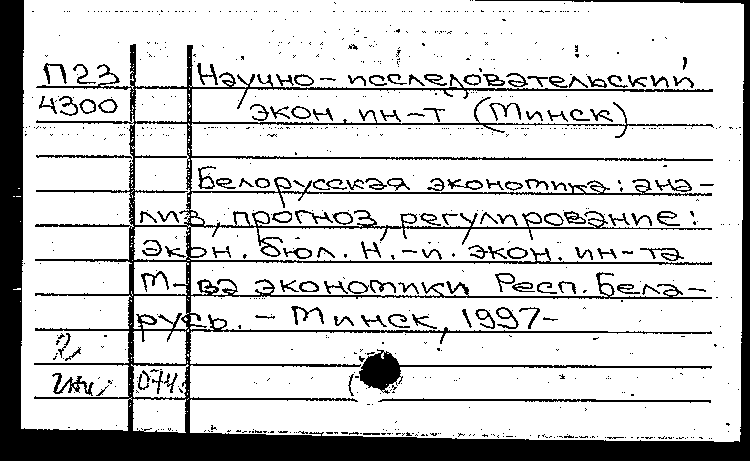 П23 Научно-последовательский
4300 экон. ин-т (Минск)
Белорусская экономика: ана-
лиз, прогноз, регулирование:
экон. бюл. Н.-и. экон. ин-та
М-ва экономики Респ. Бела-
русь. - Минск, 1997-